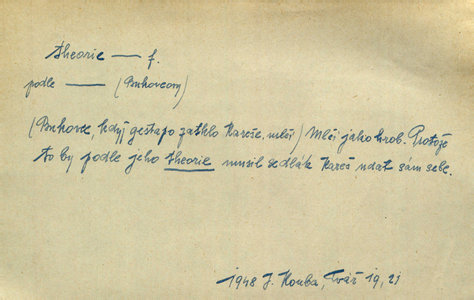 theorie — f.
podle — (Buhovcovy)
(Buhovec, když gestapo zatklo Kareše, mlčí) Mlčí jako hrob. Protože
to by podle jeho theorie musil sedlák Kareš udat sám sebe.
1948 J. Kouba, Tvář 19, 21